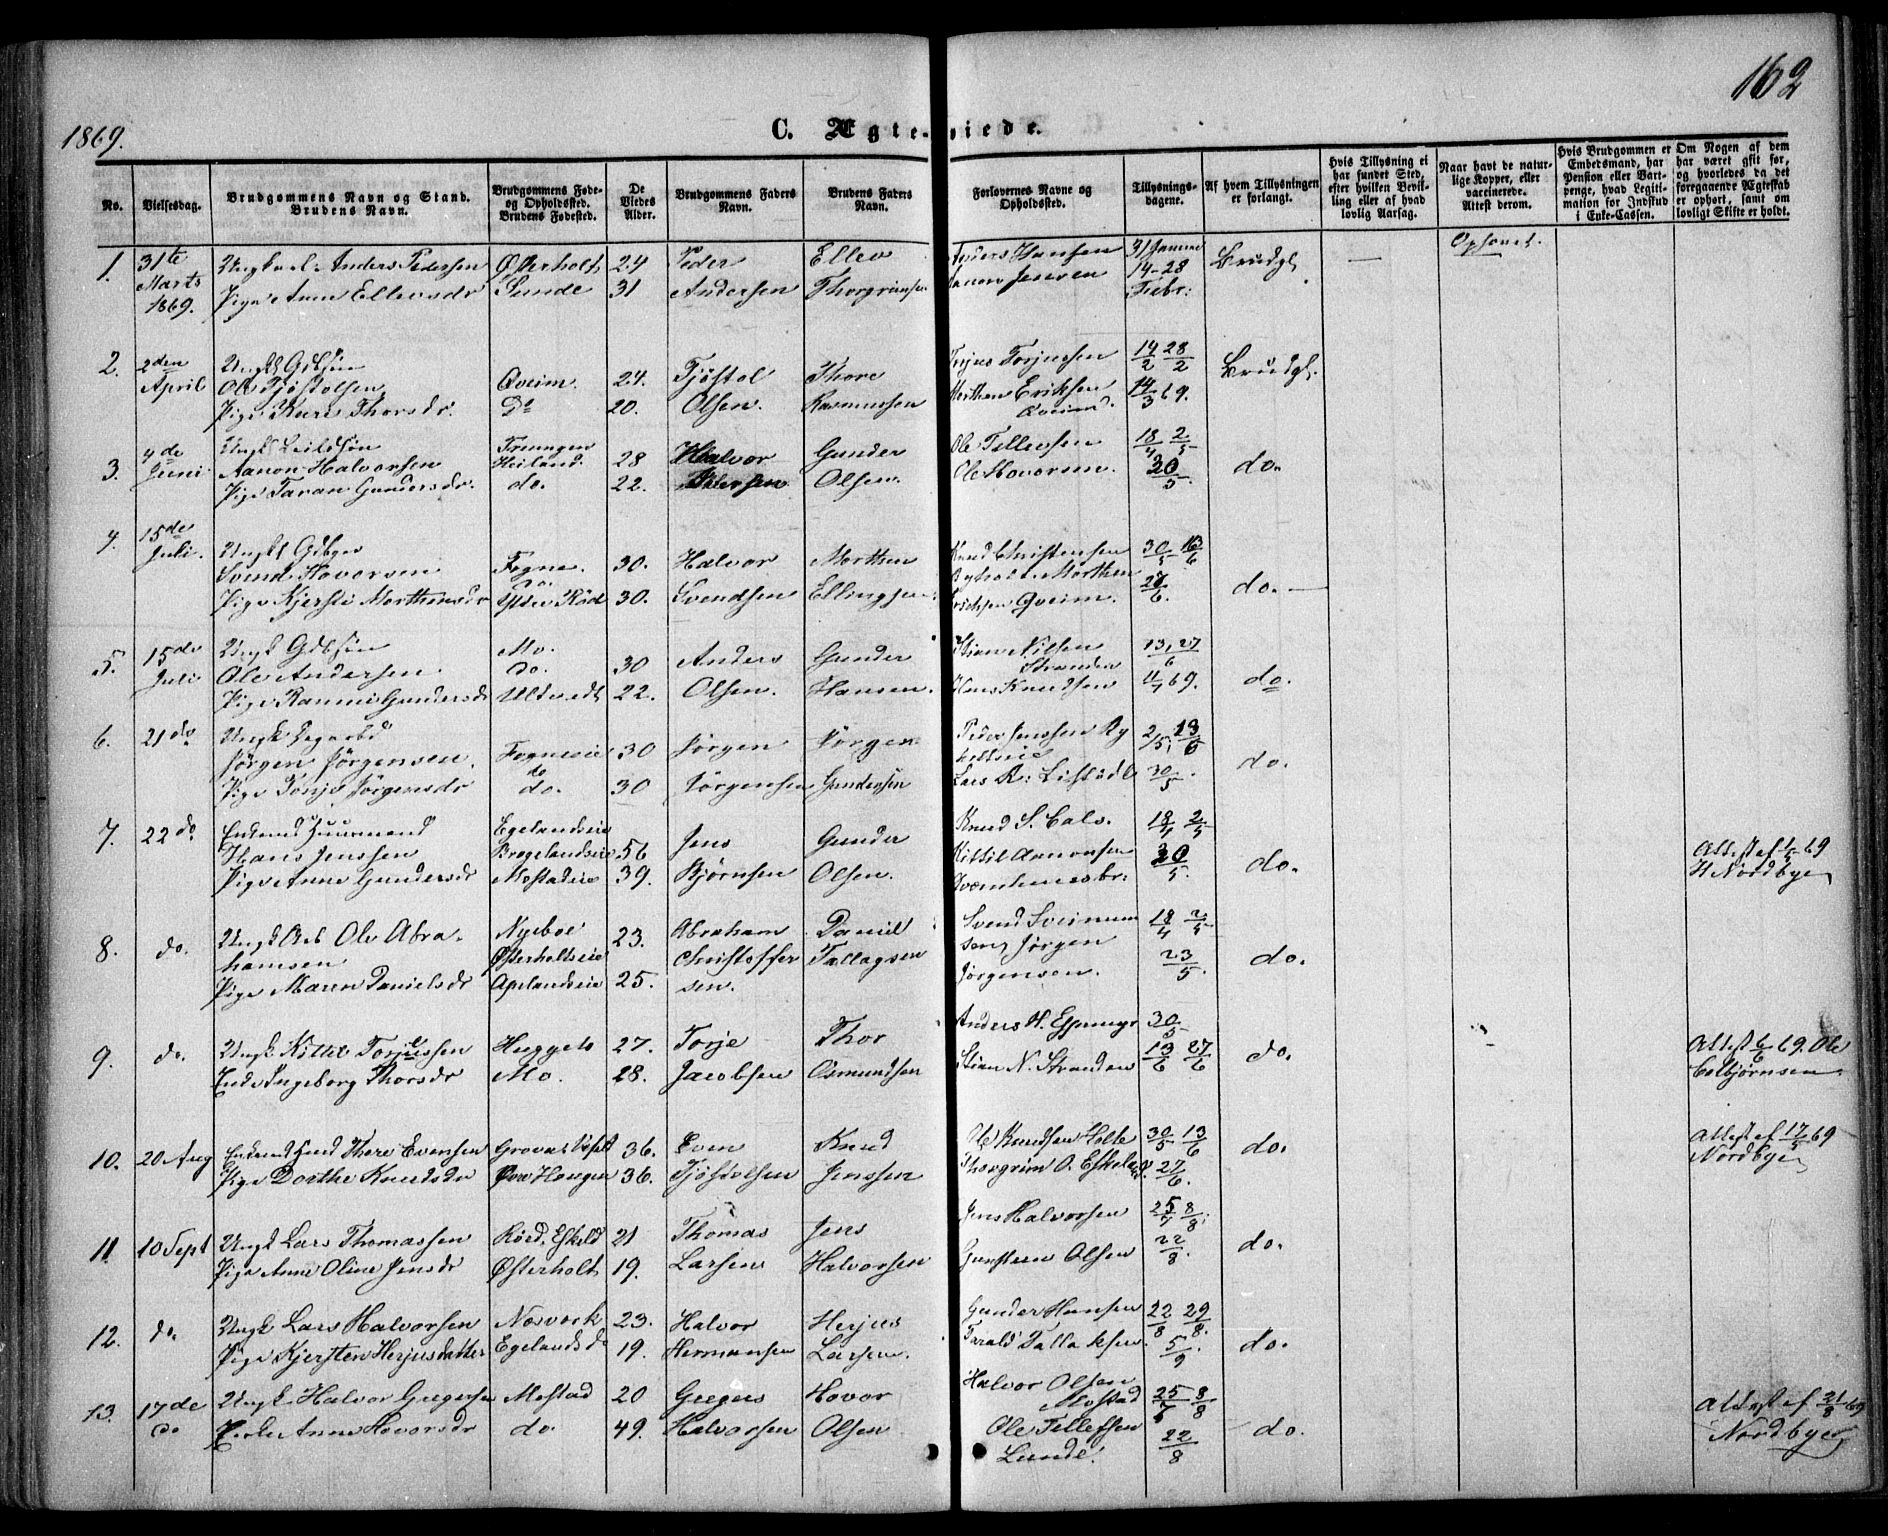 162
1869.
C. Ægte-viede.
No.
Vielsesdag.
Brudgommens Navn og Stand.
Brudens Navn.
Brudgommens Føde-
og Opholdssted.
Brudens Fødested.
De
Viedes
Alder.
Brudgommens Faders
Navn.
Brudens Faders
Navn.
Forlovernes Navne og
Opholdssted.
Tillysnings-
dagene.
Af hvem Tillysningen
er forlangt.
Hvis Tillysning ei
har fundet Sted,
efter hvilken Bevil-
ling eller af hvad
lovlig Aarsag.
Naar havt de natur-
lige Kopper, eller
vaccinerede.
Attest derom.
Hvis Brudgommen er
Embedsmand, har
Pension eller Vart-
penge, hvad Legiti-
mation for Indskud
i Enke-Cassen.
Om Nogen af dem
har været gift før,
og hvorledes da det
foregaaende Ægteskab
er ophørt, samt om
lovligt Skifte er holdt.
1. 31te Marts 1869.
Anders Pedersen Østerholt 24 Peder Ellev Anders Hansen 31 Januar Brudgl. —
Pige Anne Ellevsdr Sunde 31 Andersen Thorgrimsen Jensen 14-28 Febr:
2. 2den April
Ungk Gdbsøn
Ole Tjøstolsen Qveim. 24. Tjøstol Thore Torjussen 14/2 28/2 Brudgl.
Pige Kari Thorsdr. Do 20. Olsen. Rasmussen Morthen Eriksen Qveim. 14/3 69.
3. 4de Juni
Ungk
Aanon Halvorsen Heiland. 28 Halvor Gunder Ole Tellevsen 18/4 2/5
Pige Taran Gundersdr. do. 22. Olsen. Ole Hovorsen. 30/5 do.
4. 15de Juli.
Ungk Gdbgr
Svend Hovorsen Fogne. 30. Halvor Morthen Knud Christensen 30/5 13/6
Pige Kjersti Morthensdr do. Ytre Röd 30. Svendsen Ellingsen Morthen Erichsen Qveim. 27/6 do. —
5. 15de Juli
Ungk Gdbsøn Mo.
Ole Andersen. do. 30 Anders Gunder Stian Nilsen Stranden 13, 27/6
Pige Gundersdr Ultvedt 22. Olsen. Hansen. Hans Knudsen 11/7 69. do.
6. 21de
Ungk
Jörgen Jörgensen. Fogneeie 30 Jörgen Jörgen Peder Jenssen 2/5, 13/6
Pige Tonje Jörgensdr do do. 30 Jörgensen Gundersen Lars R: 30/5 do.
7. 22 do
Enkemd Huusmand Egelandseie
Hans Jenssen 56 Jens Gunder Knud S. 18/4 2/5
Pige Anne Gundersdr Mostadeie 39. Bjørnsen Olsen. Kittil Aanonsen 30/5. do. Attest af 1/5 69 H Nordbye
8. do.
Ungk Arb Ole Abra- Nyeboe 23. Abraham Daniel Svend 18/4 2/5
hamsen Østerholtseie Christoffer Tallagsen Jörgen
Pige Maren Danielsdr Apelandseie 25. sen. Jörgensen. 23/5. do.
9. do.
Ungk Kittel Torjussen 27. Torje Thor Anders H. 30/5
Enke Ingeborg Thorsdr Mo. 28. Jacobsen Osmundsen Stian N. Stranden 13/6 27/6 do. Attest 6/6 69. Ole Colbjørnsen.
10. 20 Aug
Enkemd Thore Evensen 36. Even Knud Ole Knudsen Holte 30/5 13/6
Pige Dorthe Knudsdr Øvre Haugen 36. Tjöstolsen Jenssen Thorgrim O. 27/6. do. Attest af 17/5 69 Nordbye
11. 10 Sept
Ungk Lars Thomassen 21 Thomas Jens Jens Halvorsen 25/7 8/8.
Pige Anne Oline Jensdr Østerholt 19. Larsen Halvorsen Gunsteen Olsen 22/8 do.
12. do
Ungk Lars Halvorsen Næsverk 23. Halvor Herjus Gunder Hansen 22/8 29/8.
Pige Kjersten Herjusdatter 19. Hermansen Larsen. Tarald Tallaksen. 5/9 do.
13. 17de do
Ungk Halvor Gregersen Mostad 20 Gregers Hovor Halvor Olsen Mostad 25/7 8/8
Enke Anne Hovorsdr do. 49. Halvorsen Olsen Ole Tellefsen Lunde. 22/8 do. Attest af 21/8 69 Nordbye